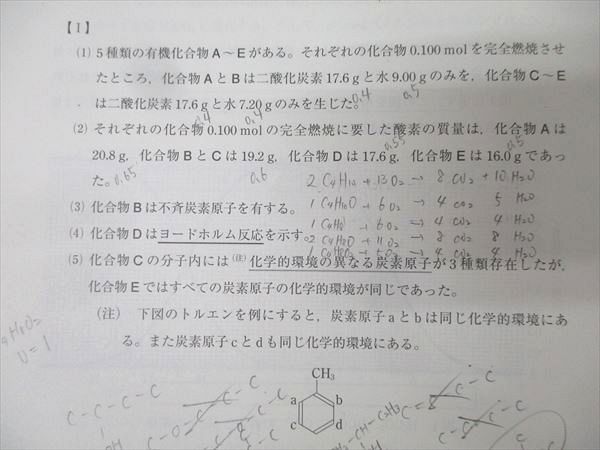 【1】
(1) 5種類の有機化合物A～Eがある。それぞれの化合物0.100 molを完全燃焼させ
たところ，化合物AとBは二酸化炭素17.6 gと水9.00 gのみを，化合物C～E
は二酸化炭素17.6 gと水7.20 gのみを生じた。
0.4 0.5
0.4 0.4
(2) それぞれの化合物0.100 molの完全燃焼に要した酸素の質量は，化合物Aは
20.8 g，化合物BとCは19.2 g，化合物Dは17.6 g，化合物Eは16.0 gであっ
0.55 0.5
た。
0.65 0.6
2 C4H10 + 13O2 → 8 CO2 + 10 H2O
(3) 化合物Bは不斉炭素原子を有する。
1 C4H10O + 6O2 → 4 CO2 5 H2O
+ 6O2 → 4 CO2 4 H2O
(4) 化合物Dはヨードホルム反応を示す。
2 C4H8O + 11O2 → 8 CO2 8 H2O
→ 4 CO2 4 H2O
(5) 化合物Cの分子内には(注)化学的環境の異なる炭素原子が3種類存在したが，
化合物Eではすべての炭素原子の化学的環境が同じであった。
(注) 下図のトルエンを例にすると，炭素原子aとbは同じ化学的環境にあ
る。また炭素原子cとdも同じ化学的環境にある。
U=1
CH3
a b
c d
C-C-C-C
OH